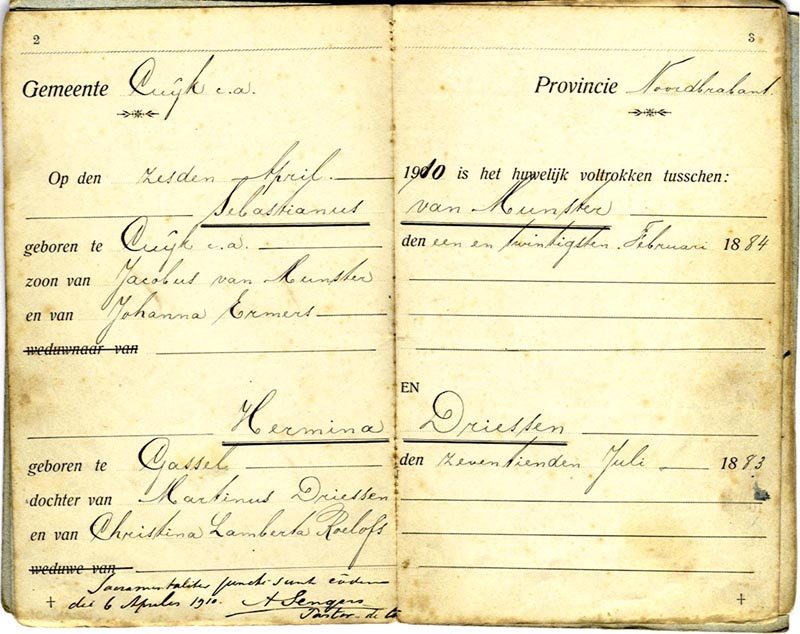 2
Gemeente Cuijk c.a.
Op den zesden April
Sebastianus
geboren te Cuijk c.a.
zoon van Jacobus van Munster
en van Johanna Ermers
weduwnaar van
Hermina
geboren te Gassel
dochter van Martinus Driessen
en van Christina Lamberta Roelofs
weduwe van
Sacramentaliter juncti sunt eadem
die 6 Aprilis 1910. A Sengers
Pastor
3
Provincie Noordbrabant.
1910 is het huwelijk voltrokken tusschen:
van Munster
den een en twintigsten Februari 1884
EN
Driessen
den zeventienden Juli 1883